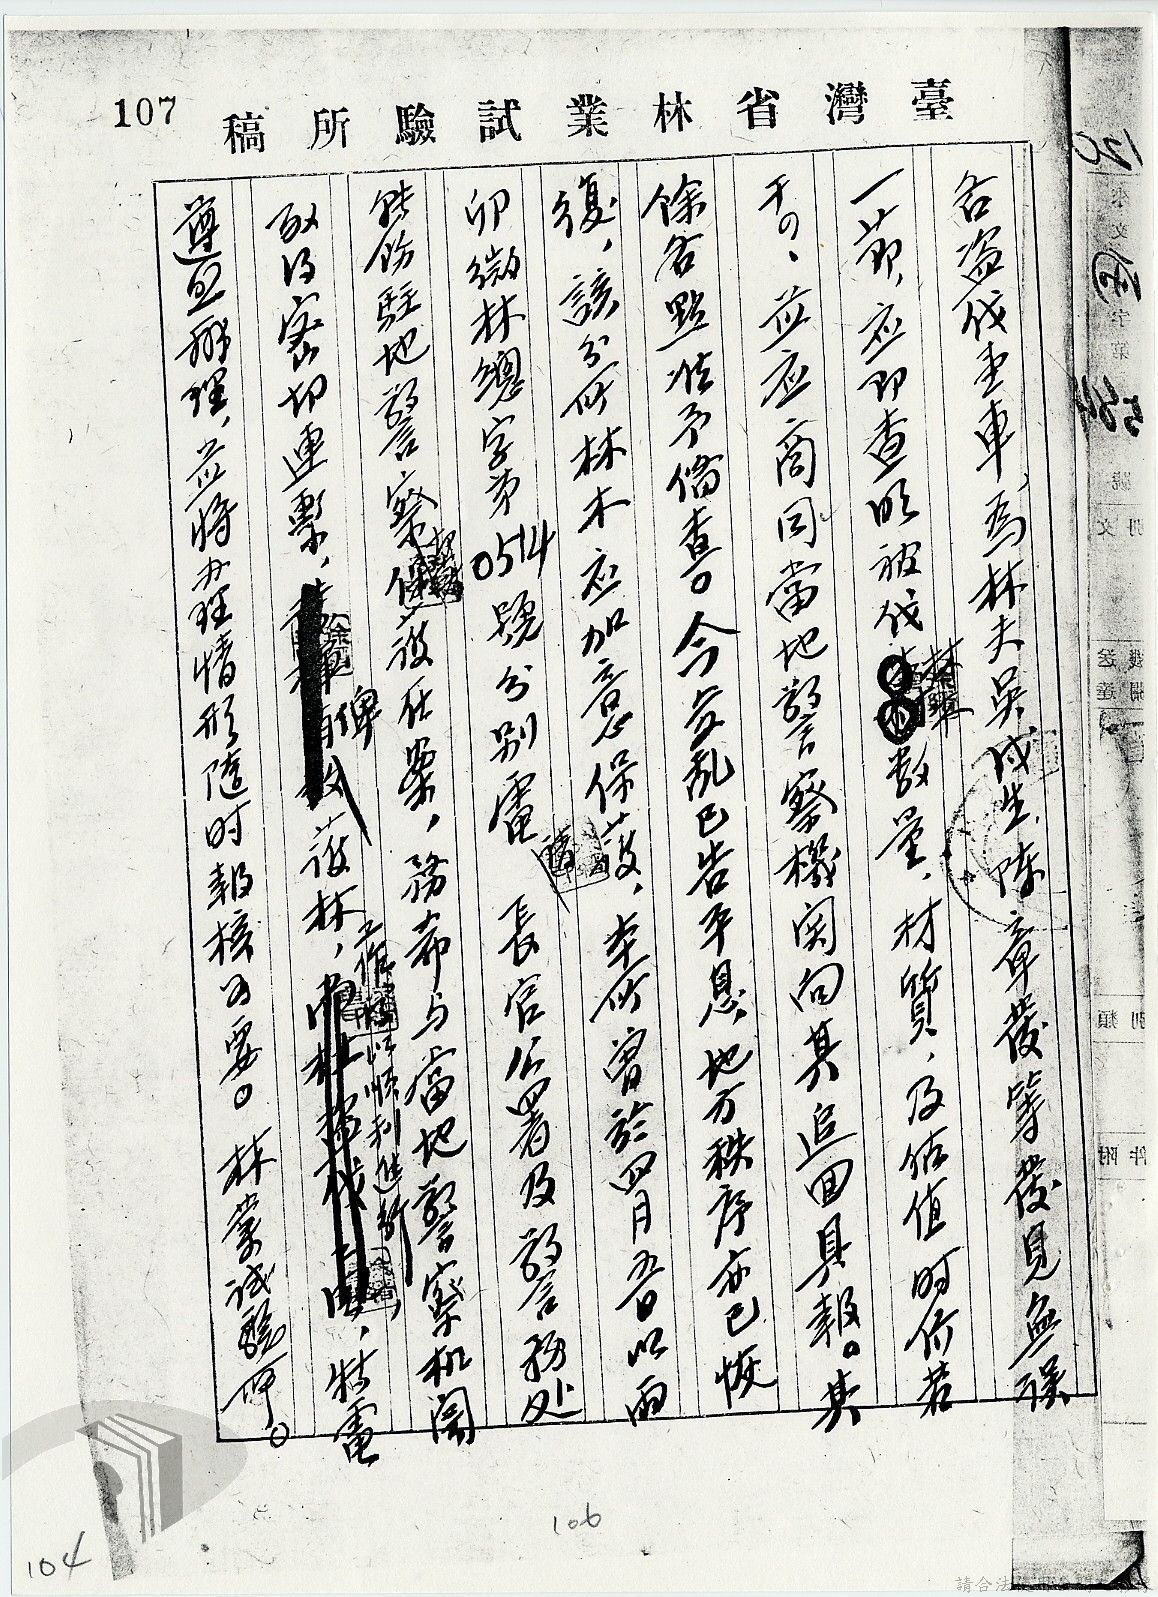 107
臺灣省林業試驗所稿
名盜伐台車，為林夫吳成生、陳章發等發見無誤
一節，应即查明被伐林木數量，材質，及估值時價若
干，並应商同當地警察機関向其追回具報。其
餘各點准予備查。今變乱已告平息，地方秩序亦已恢
復，該分所林木应加意保護，本所曾於四月五日以兩
卯微林總字第0514號分别電請 長官公署及警務处
轉飭駐地警察保護在案，務希与當地警察机関
取得密切連繫，俾護林工作得以順利進行，特電
遵照辦理，並將办理情形隨时報核为要。林業試驗所。
106
104